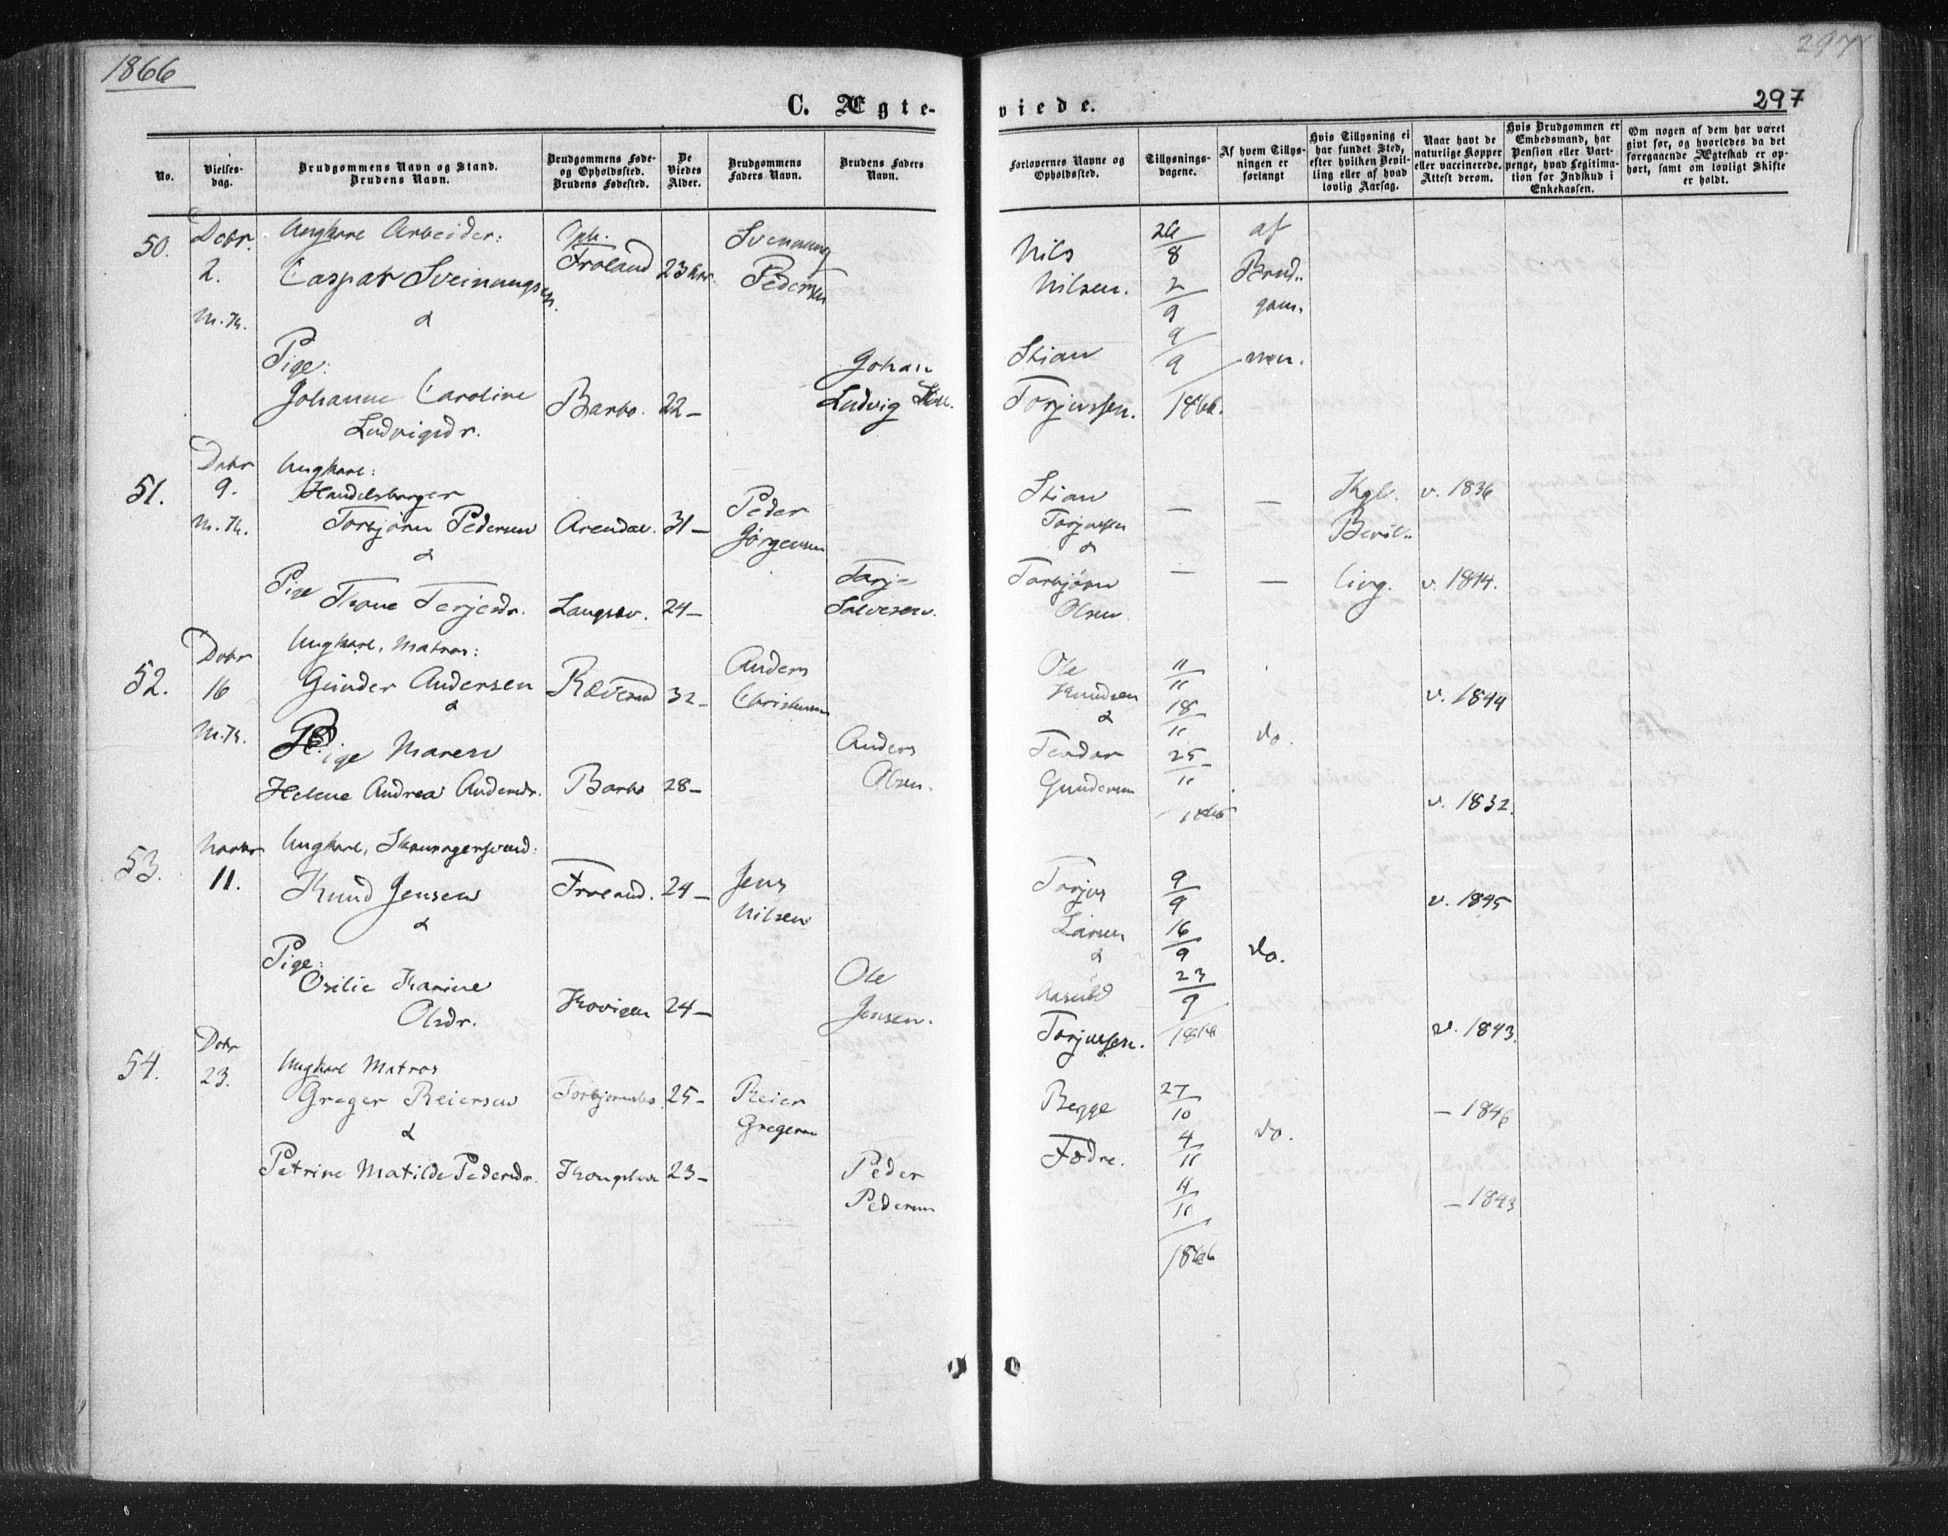 1866
297
C. Ægte-
viede.
297
No.
Vielses-
dag.
Brudgommens Navn og Stand.
Brudens Navn.
Brudgommens Føde-
og Opholdssted.
Brudens Fødested.
De
Viedes
Alder.
Brudgommens
Faders Navn.
Brudens Faders
Navn.
Forlovernes Navne og
Opholdssted.
Tillysnings-
dagene.
Af hvem Tillys-
ningen er
forlangt
Hvis Tillysning ei
har fundet Sted,
efter hvilken Bevil-
ling eller af hvad
lovlig Aarsag.
Naar havt de
naturlige Kopper
eller vaccinerede.
Attest derom.
Hvis Brudgommen er
Embedsmand, har
Pension eller Vart-
penge, hvad Legitima-
tion for Indskud i
Enkekassen.
Om nogen af dem har været
givt før, og hvorledes da det
foregaaende Ægteskab er op-
hørt, samt om lovligt Skifte
er holdt.
50.
Decbr.
2.
M. K.
Ungkarl Arbeider:
Caspar Sveinungsen.
&
Pige:
Johanne Caroline
Ludvigsdr.
Froland
Barbo.
23 Aar.
22 –
Svennung
Pedersen
Johan
Ludvig
Nils
Nilsen.
Stian
Torjussen.
26/8
2/9
9/9
1866.
af
Brud-
gom-
men.
51.
Decbr
9.
M. K.
Ungkarl:
Handelsborger
Torbjørn Pedersen
&
Pige
Thone Terjesdr.
Arendal.
Langsev.
31 –
24 –
Peder
Jørgensen
Terje
Salvesen.
Stian
Torjussen
&
Torbjørn
Olsen.
–
–
–
–
Kgl.
Bevil-
ling.
v. 1836
v. 1844.
52.
Decbr
16
M. K.
Ungkarl, Matros:
Gunder Andersen
&
Pige Maren
Helene Andrea Andersdr.
Rævesand
Barbo
32 –
28 –
Anders
Christensen
Anders
Olsen.
Ole
Knudsen
&
Gundersen
11/11
18/11
25/11
1866
do.
v. 1844
v. 1832.
53.
11.
Ungkarl,
Knud Jensen
&
Pige:
Osilie Karine
Olsdr.
Froland.
24 –
24 –
Jens
Nilsen
Ole
Jensen.
Torjus
Larsen
&
Torjussen.
9/9
16/9
23/9
1866
do.
v. 1845
v. 1843.
54.
Decbr
23.
Ungkarl Matros
Greger Reiersen
&
Petrine Matilde Pedersdr.
Torbjørnsbo
25 –
23 –
Reier
Gregersen
Peder
Pedersen
Begge
Fædre.
27/10
4/11
11/10
1866
do.
– 1846
– 1843